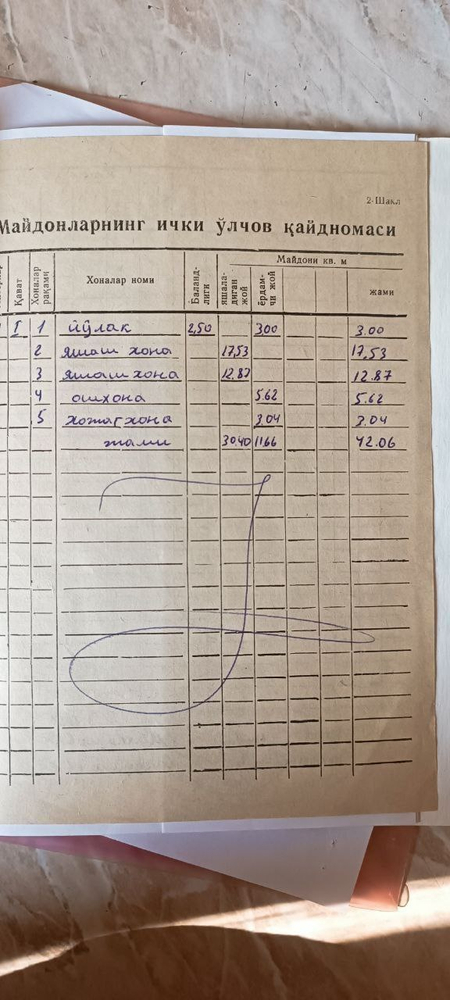 2-Шакл
Майдонларнинг ички ўлчов қайдномаси
Қават
Хоналар рақами
Хоналар номи
Баланд-
лиги
Майдони кв. м
яшала-
диган
жой
ёрдам-
чи жой
жами
I 1 йўлак 2,50 3.00 3.00
2 яшаш хона 17,53 17,53
3 яшаш хона 12.87 12.87
4 ошхона 5.62 5.62
5 хожатхона 3.04 3.04
жами 30.40 11.66 42.06